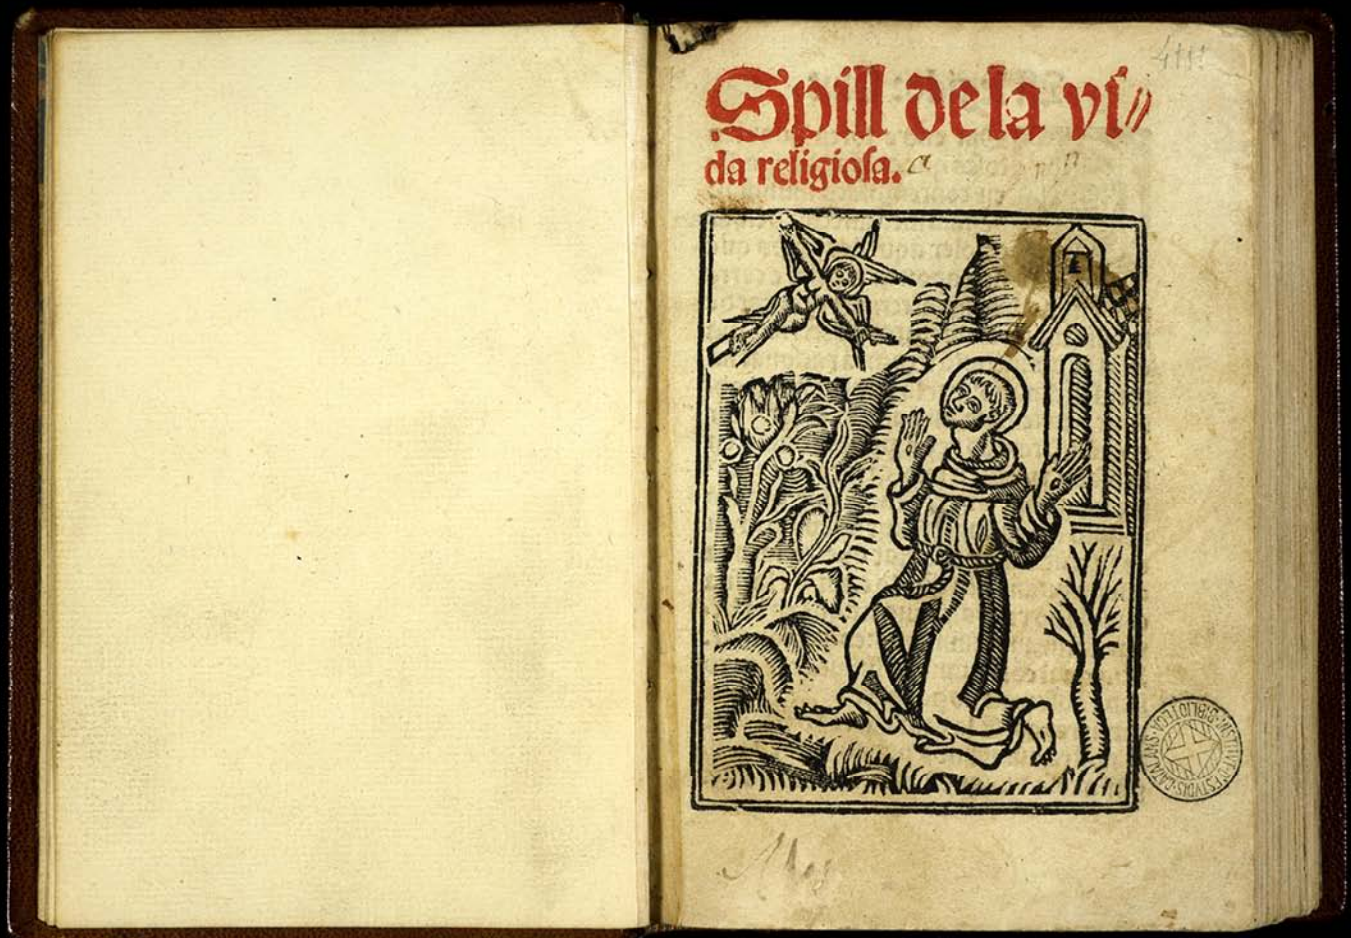 4111
Spill de la vi//
da religiosa.
INSTITVT D'ESTVDIS CATALANS BIBLIOTECA